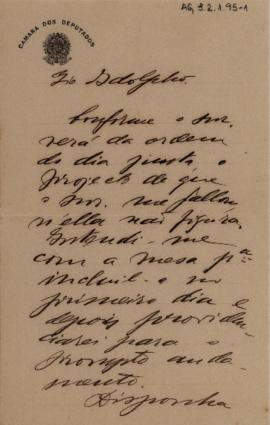 AG, 3.2.1.95-1
CAMARA DOS DEPUTADOS
Tio Adolpho.
Conforme o snr.
verá da ordem
do dia junta o
projecto de que
o snr. me fallou
n'ella não figura.
Entendi-me
com a mesa pa
incluil-o no
primeiro dia e
depois providen
ciarei para o
prompto anda-
mento.
Disponha